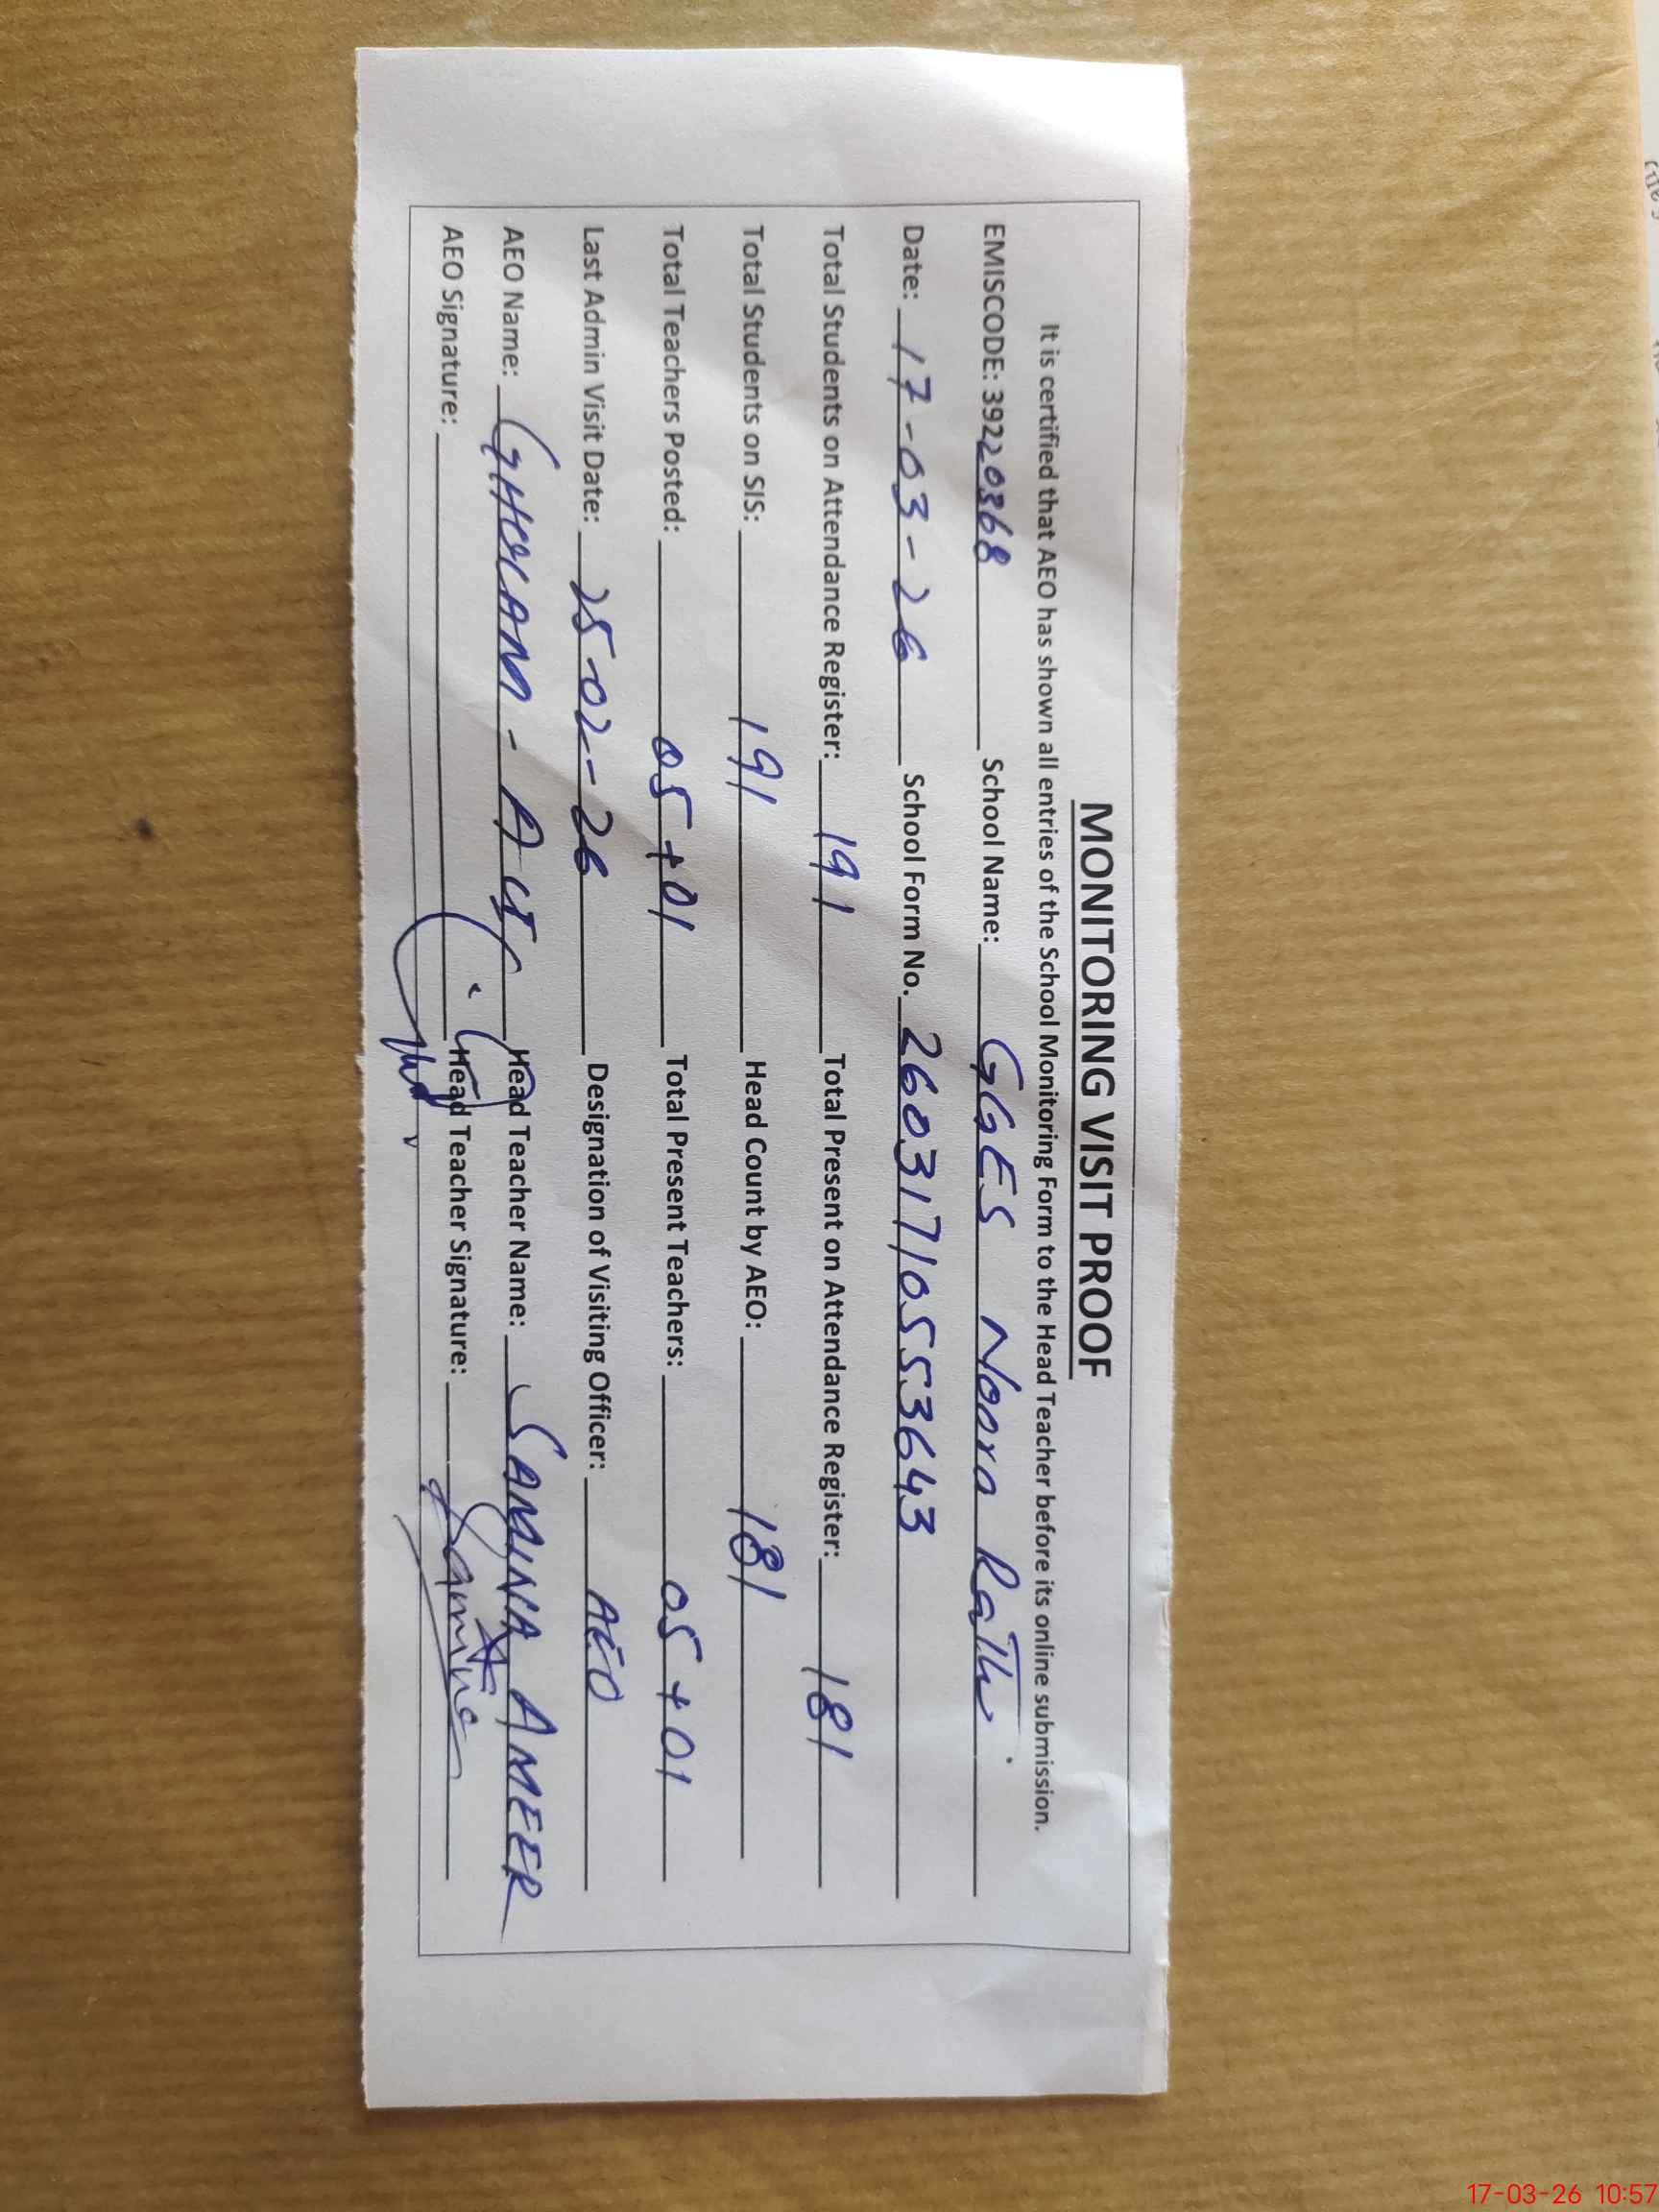 MONITORING VISIT PROOF
It is certified that AEO has shown all entries of the School Monitoring Form to the Head Teacher before its online submission.
EMISCODE: 39220368 School Name: GGES Noora Rath
Date: 17-03-26 School Form No. 26031710553643
Total Students on Attendance Register: 191 Total Present on Attendance Register: 181
Total Students on SIS: 191 Head Count by AEO: 181
Total Teachers Posted: 05+01 Total Present Teachers: 05+01
Last Admin Visit Date: 25-02-26 Designation of Visiting Officer: AEO
AEO Name: GHOLAM-ALI Head Teacher Name: SAMINA AMEER
AEO Signature: Head Teacher Signature: Samina
17-03-26 10:57